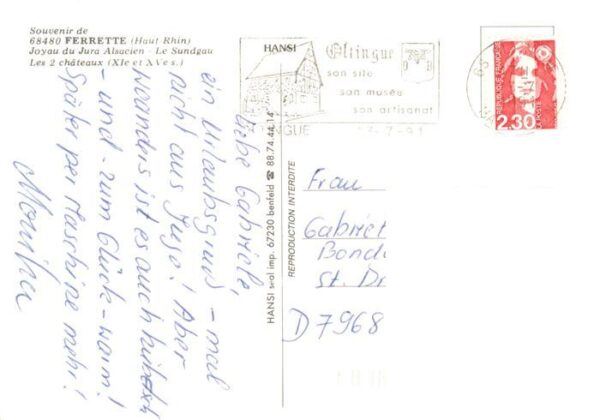 Souvenir de
68480 FERRETTE (Haut-Rhin)
Joyau du Jura Alsacien - Le Sundgau
Les 2 châteaux (XIe et XVe s.)
Liebe Gabriele,
ein Urlaubsgruß - mal
nicht aus Jugo! Aber
woanders ist es auch hübsch
- und - zum Glück - warm!
Später per Maschine mehr!
Monika
HANSI seal imp. 67230 benfeld ☎ 88.74.44.14
REPRODUCTION INTERDITE
HANSI
Oltingue
son site
son musée
son artisanat
-7-91
68
REPUBLIQUE FRANÇAISE
LA POSTE
2,30
Frau
Gabriel
Bond
St. Dr
D 7968